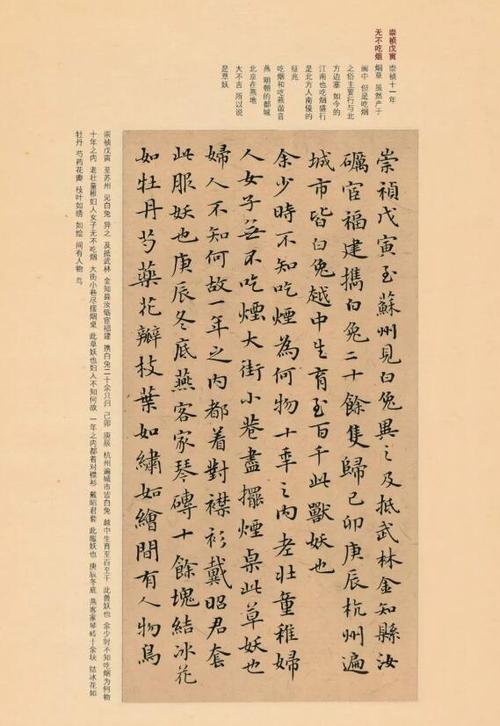 崇禎戊寅
无不吃烟
崇祯十一年
烟草 虽然产于
闽中 但是吃烟
之俗主要行与北
方边塞 如今的
江南也吃烟盛行
是北方人南侵的
征兆
吃烟和吃燕谐音
燕 明朝的都城
北京在燕地
大不吉 所以说
是草妖
崇禎戊寅至蘇州見白兔異之及抵武林金知縣汝
礪官福建攜白兔二十餘隻歸己卯庚辰杭州遍
城市皆白兔越中生育至百千此獸妖也
余少時不知吃煙為何物十年之內老壯童稚婦
人女子無不吃煙大街小巷盡擺煙桌此草妖也
婦人不知何故一年之內都着對襟衫戴昭君套
此服妖也庚辰冬底燕客家琴磚十餘塊結冰花
如牡丹芍藥花瓣枝葉如繡如繪間有人物鳥
崇祯戊寅 至苏州 见白兔 异之 及抵武林 金知县汝砺官福建 携白兔二十余只归 己卯 庚辰 杭州遍城市皆白兔 越中生育至百至千 此兽妖也 余少时不知吃烟为何物
十年之内 老壮童稚妇人女子无不吃烟 大街小巷尽摆烟桌 此草妖也 妇人不知何故 一年之内都着对襟衫 戴昭君套 此服妖也 庚辰冬底 燕客家琴砖十余块 结冰花如
牡丹 芍药花瓣 枝叶如绣 如绘 间有人物 鸟